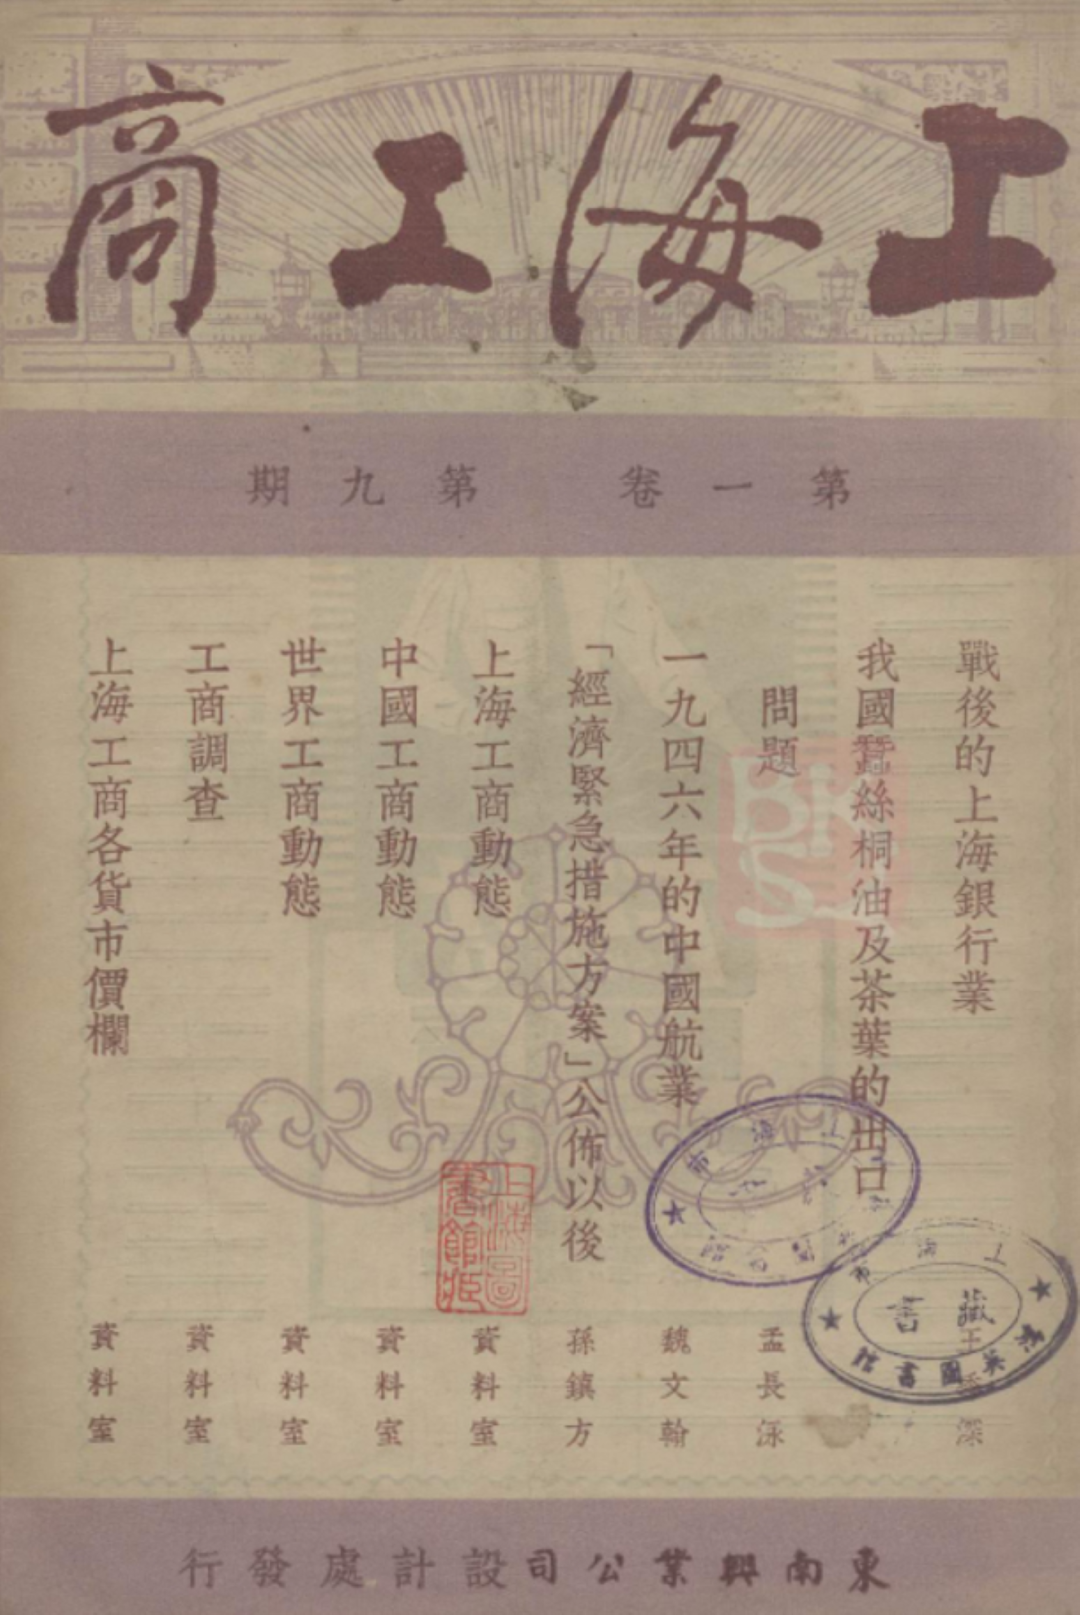 上海工商
第一卷 第九期
戰後的上海銀行業
王 深
我國蠶絲桐油及茶葉的出口
問題 孟長泳
一九四六年的中國航業 魏文翰
「經濟緊急措施方案」公佈以後 孫鎮方
上海工商動態 資料室
中國工商動態 資料室
世界工商動態 資料室
工商調查 資料室
上海工商各貨市價欄 資料室
上海圖書館藏
藏書
東南興業公司設計處發行